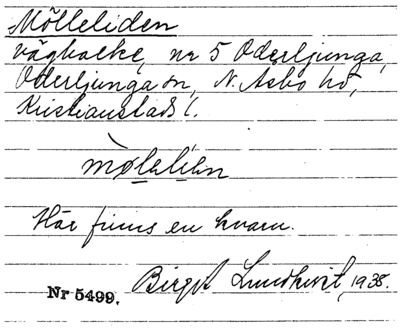 Mölleliden
vägbacke, nr 5 Oderljunga,
Oderljunga sn, N. Åsbo hd,
Kristianstads l.
Här finns en kvarn.
Birgit Lundkvist, 1938.
Nr 5499.